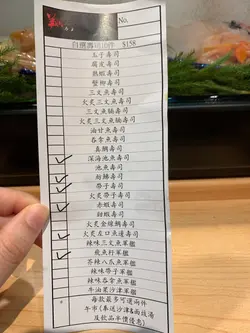 No.
自選壽司拾件 $158
玉子壽司
腐皮壽司
熟蝦壽司
蟹柳壽司
三文魚壽司
火炙三文魚壽司
三文魚腩壽司
火炙三文魚腩壽司
油甘魚壽司
吞拿魚壽司
真鯛壽司
深海池魚壽司
池魚壽司
紋䱽壽司
帶子壽司
火炙帶子壽司
赤蝦壽司
甜蝦壽司
火炙金線鯛壽司
火炙左口魚邊壽司
辣味三文魚軍艦
飛魚籽軍艦
芥辣八爪魚軍艦
辣味帶子軍艦
辣味吞拿魚軍艦
牛油果沙津軍艦
每款最多可選兩件
午市(奉送沙津&麵豉湯
及飲品半價優惠)